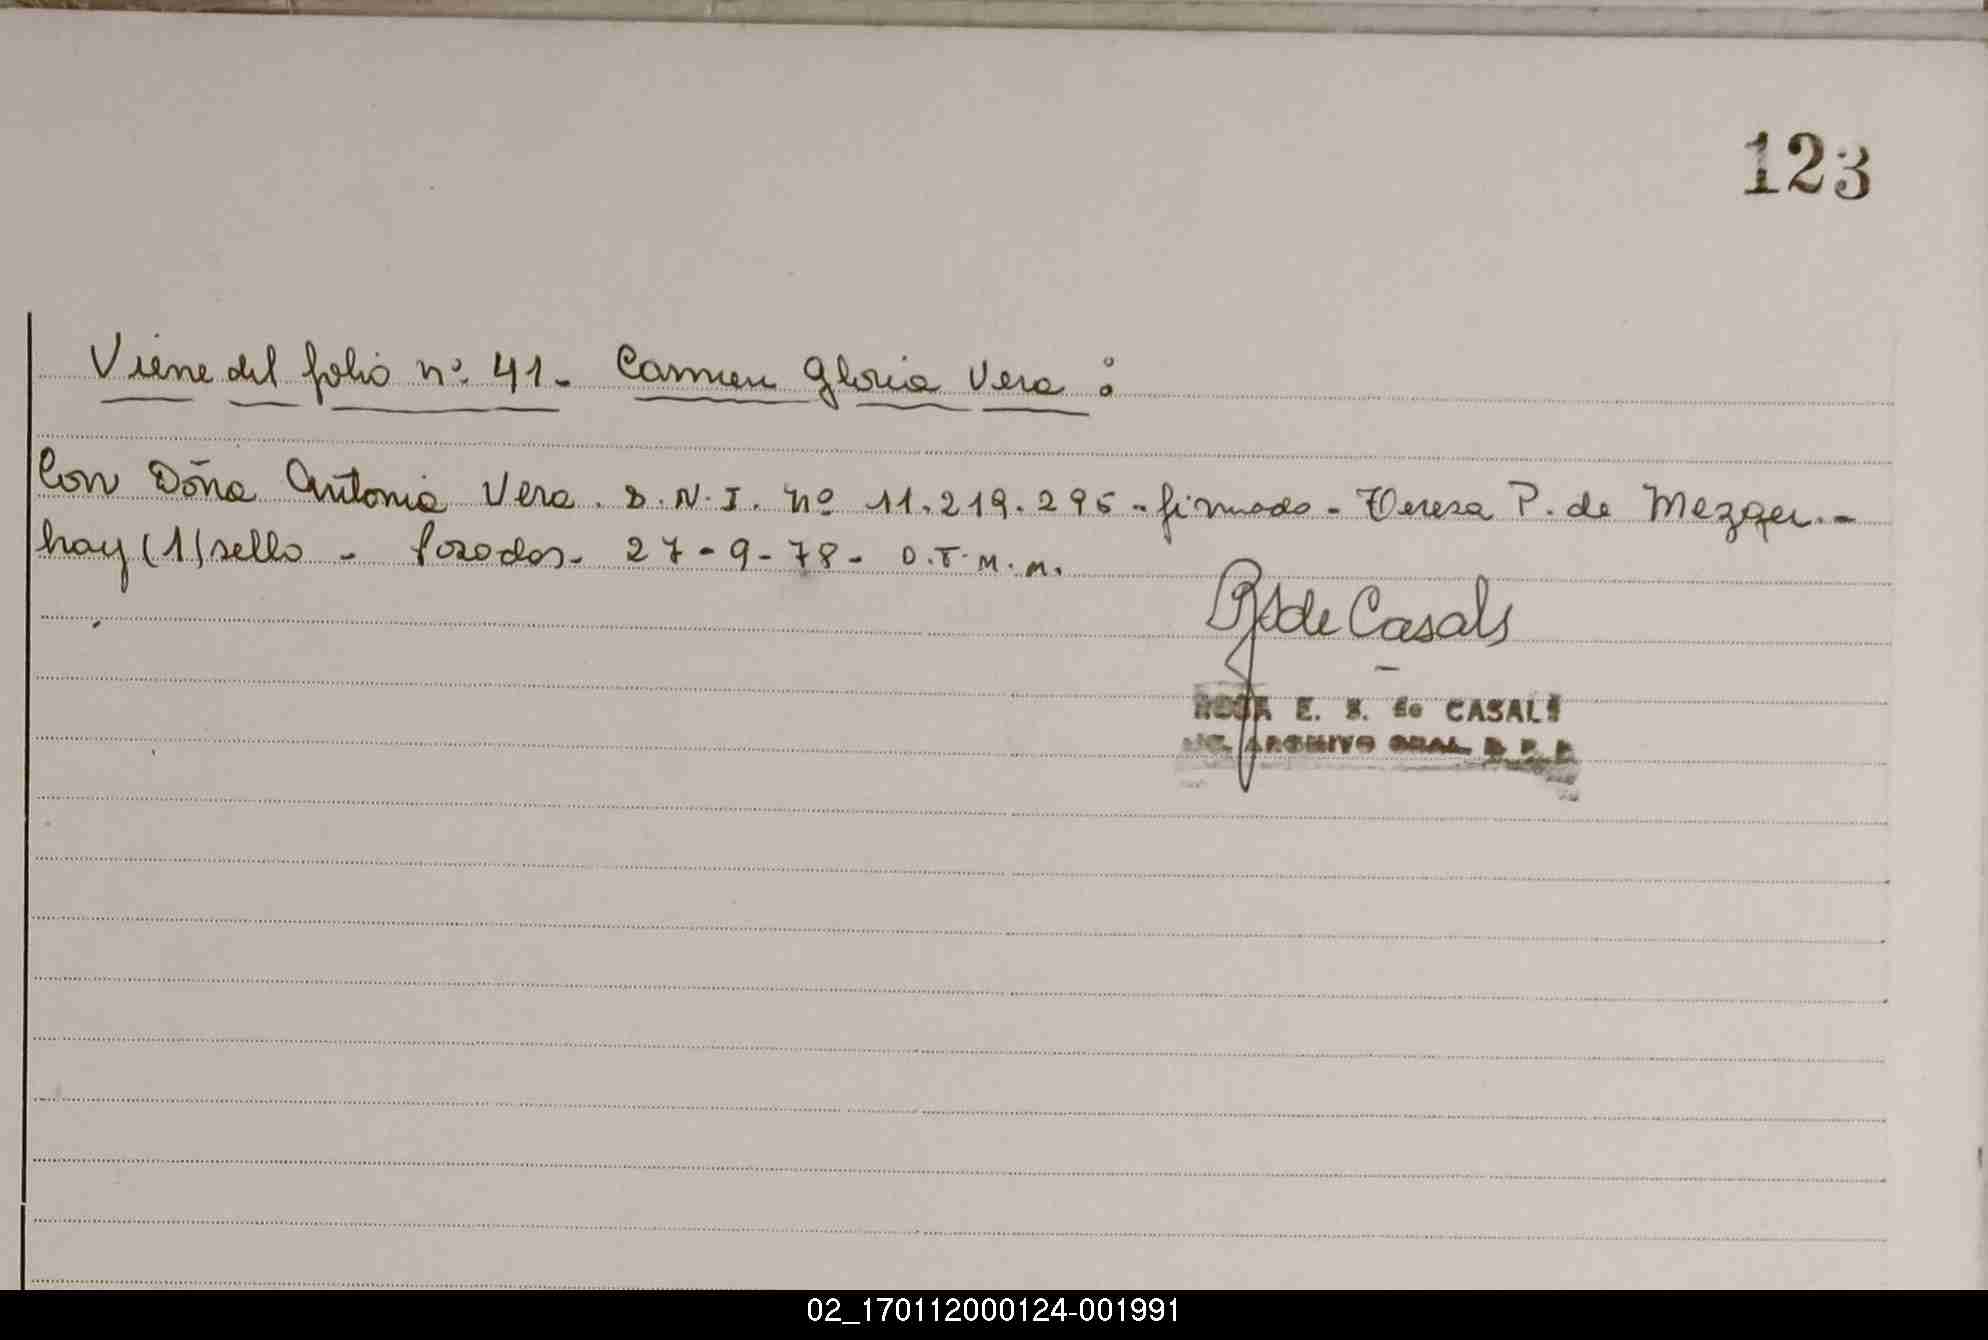 123
Viene del folio nº 41. Carmen Gloria Vera:
Con Doña Antonia Vera. D.N.I. nº 11.219.295 - firmado - Teresa P. de Mezger.-
hay (1) sello - Posadas - 27-9-78 - O.T.M.M.
de Casals
ROSA E. S. de CASALS
ARCHIVO GRAL.
02_170112000124-001991